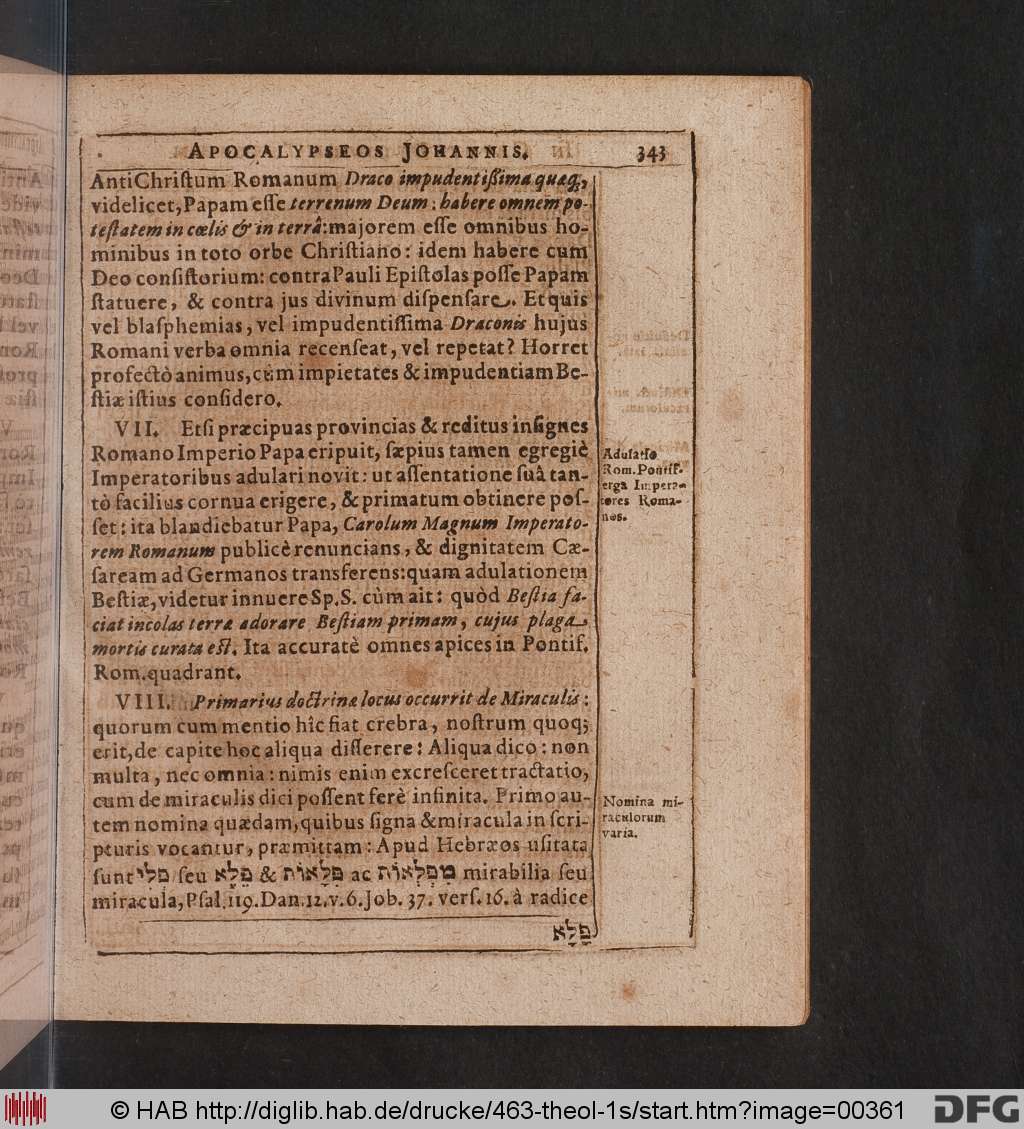 APOCALYPSEOS JOHANNIS. 343
AntiChriſtum Romanum Draco impudentiſſima quæq;,
videlicet, Papam eſſe terrenum Deum: habere omnem po-
teſtatem in cœlis & in terrâ: majorem eſſe omnibus ho-
minibus in toto orbe Chriſtiano: idem habere cum
Deo conſiſtorium: contra Pauli Epiſtolas poſſe Papam
ſtatuere, & contra jus divinum diſpenſare. Et quis
vel blaſphemias, vel impudentiſſima Draconis hujus
Romani verba omnia recenſeat, vel repetat? Horret
profectò animus, cùm impietates & impudentiam Be-
ſtiæ iſtius conſidero.
VII. Etſi præcipuas provincias & reditus inſignes
Romano Imperio Papa eripuit, ſæpius tamen egregiè
Imperatoribus adulari novit: ut aſſentatione ſuâ tan-
tò facilius cornua erigere, & primatum obtinere poſ-
ſet: ita blandiebatur Papa, Carolum Magnum Imperato-
rem Romanum publicè renuncians, & dignitatem Cæ-
ſaream ad Germanos transferens: quam adulationem
Beſtiæ, videtur innuere Sp. S. cùm ait: quòd Beſtia fa-
ciat incolas terræ adorare Beſtiam primam, cujus plaga
mortis curata eſt. Ita accuratè omnes apices in Pontif.
Rom. quadrant.
Adulatio
Rom. Pontiff.
erga Impera-
tores Roma-
nos.
VIII. Primarius doctrinæ locus occurrit de Miraculis:
quorum cum mentio hîc fiat crebra, noſtrum quoq;
erit, de capite hoc aliqua diſſerere: Aliqua dico: non
multa, nec omnia: nimis enim excreſceret tractatio,
cum de miraculis dici poſſent ferè infinita. Primo au-
tem nomina quædam, quibus ſigna & miracula in ſcri-
pturis vocantur, præmittam: Apud Hebræos uſitata
ſunt פלי ſeu פֶּלָא & פְּלָאוֹת ac מִפְלְאוֹת mirabilia ſeu
miracula, Pſal. 119. Dan. 12. v. 6. Job. 37. verſ. 16. à radice
פָּלָא
Nomina mi-
raculorum
varia.